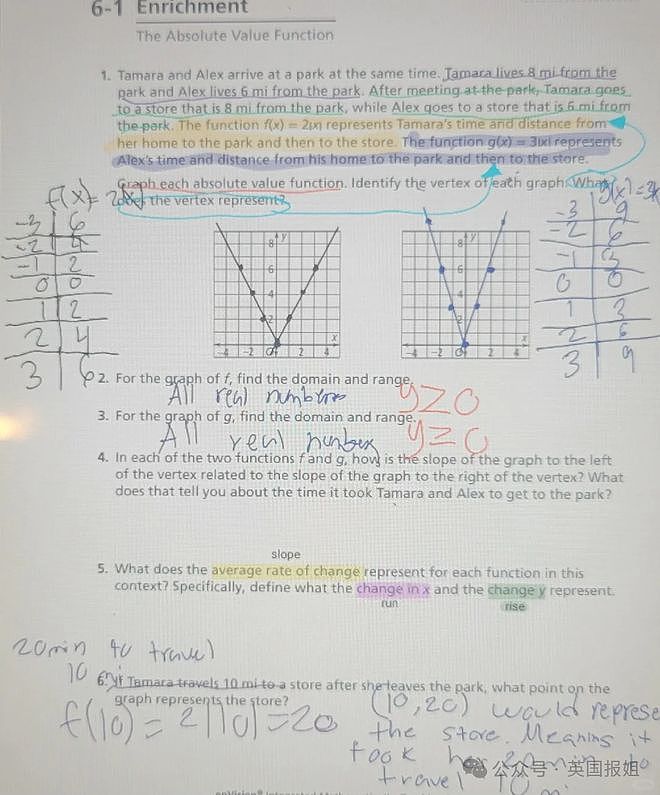 6-1 Enrichment
The Absolute Value Function
1. Tamara and Alex arrive at a park at the same time. Tamara lives 8 mi from the
park and Alex lives 6 mi from the park. After meeting at the park, Tamara goes
to a store that is 8 mi from the park, while Alex goes to a store that is 6 mi from
the park. The function f(x) = 2|x| represents Tamara's time and distance from
her home to the park and then to the store. The function g(x) = 3|x| represents
Alex's time and distance from his home to the park and then to the store.
Graph each absolute value function. Identify the vertex of each graph. What
the vertex represent?
f(x) = 2
-3 6
-2 4
-1 2
0 0
1 2
2 4
3 6
8 y
6
4
2
-4 -2 O 2 4 x
8 y
6
4
2
-4 -2 O 2 4 x
g(x) = 3
-3 9
-2 6
-1 3
0 0
1 3
2 6
3 9
2. For the graph of f, find the domain and range.
All real numbers y≥0
3. For the graph of g, find the domain and range.
All real numbers y≥0
4. In each of the two functions f and g, how is the slope of the graph to the left
of the vertex related to the slope of the graph to the right of the vertex? What
does that tell you about the time it took Tamara and Alex to get to the park?
slope
5. What does the average rate of change represent for each function in this
context? Specifically, define what the change in x and the change y represent.
run rise
20min to travel
10 mi
6. If Tamara travels 10 mi to a store after she leaves the park, what point on the
graph represents the store?
f(10) = 2|10| = 20
(10,20) would represe
the store. Meaning it
took her 20 min to
travel 10 mi
公众号 · 英国报姐